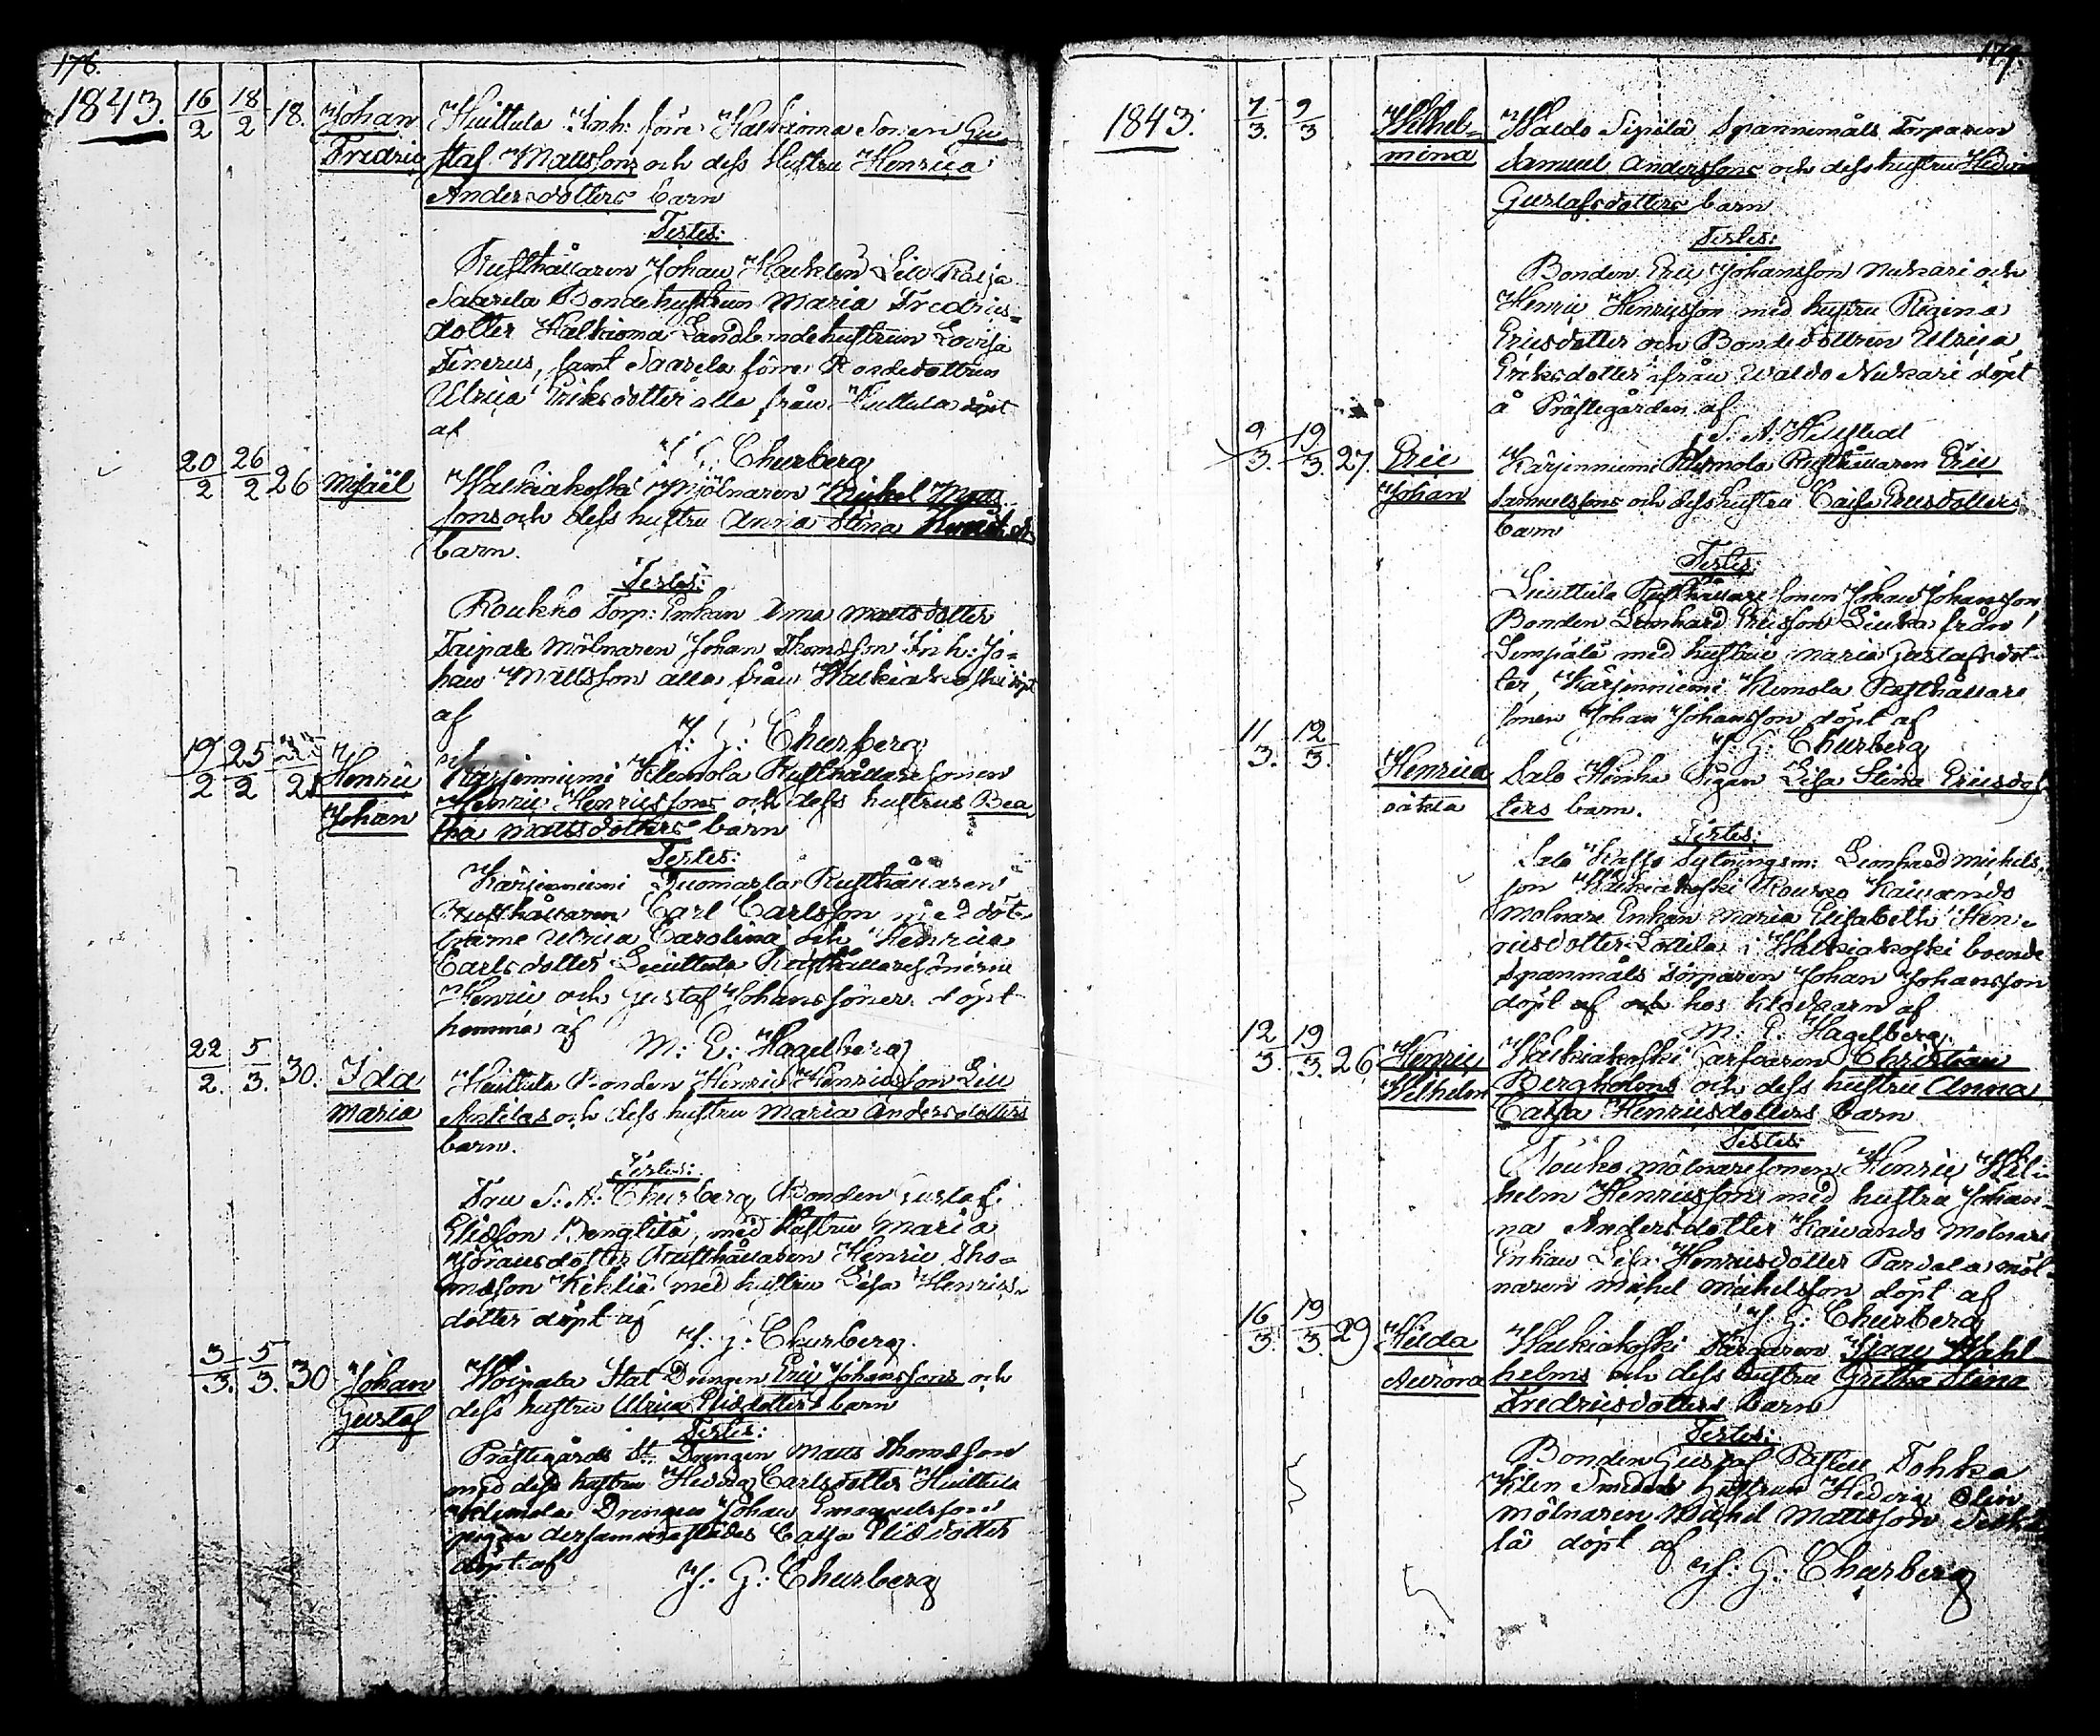 176.
1843.
16/2 18/2 18. Johan Huittula Inh: förre Halkioma Sonen Gu
Fredric staf Mattssons och dess Hustru Henrica
Andersdotters barn
Testes:
Rusthållaren Johan Hacklin Lill Raija
Saarela Bondehustrun Maria Fredrics=
dotter Halkioma Landbondehustrun Lovisa
Finerus, samt Saarela förre Bondedottren
Ulrica Eriksdotter alla från Huittula döpt
af
J. G. Churberg
20/2 26/2 26 Misaël Walkiakoski Mjölnaren Mickel Matts
sons och dess hustru Anna Stina
barn.
Testes:
Roukko Torp: Enkan Anna Mattsdotter
Taipale Mölnaren Johan Thomasson Inh: Jo=
han Mattsson alla från Walkiakoski döpt
af
J: G: Churberg
19/2 25/2 21 Henric Kärjenniemi Klemola Rusthållare sonen
Johan Henric Henricssons och dess hustrus Bea
tha Mattsdotters barn
Testes:
Kärjenniemi Tuomarla Rusthållaren
Rusthållaren Carl Carlsson med döt
trarne Ulrica Carolina och Hedvica
Carlsdotter Liuttula Rusthållaresönerne
Henric och Gustaf Johanssöner döpt
hemma af
M: E: Hagelberg
22/2. 5/3. 30. Ida Huittula Bonden Henric Henricsson Lill
Maria Anttilas och dess hustru Maria Andersdotters
barn.
Testes:
Fru S. A. Churberg Bonden Gustaf
Elisson Benglits, med hustru Maria
Göransdotter Rusthållaren Henric Tho=
masson Kiklis med hustru Lisa Henrics=
dotter döpt af
J. G: Churberg.
3/3. 5/3. 30 Johan Woipala Stat Drengen Eric Johanssons och
Gustaf dess hustru Ulrica Elisdotters barn
Testes:
Prästegårds St: Drengen Matts Thomasson
med dess hustru Hedvig Carlsdotter Huittula
Drengen Johan Emanuelsson
pigan dersammastädes Cajsa Elisdotter
döpt af
J: G: Churberg
177.
1843.
7/3. 9/3 Wilhel= Waldo Sipilä Spannemåls Torparen
mina Samuel Anderssons och dess hustru Hedvig
Gustafsdotters barn
Testes:
Bonden Eric Johansson Nukari och
Henric Henricsson med hustru Regina
Ericsdotter och Bondedottren Ulrica
Eriksdotter ifrån Waldo Nukari döpt
å Prästegården af
S. A. Hellstedt
9/3. 19/3. 27. Eric Kärjenniemi Klemola Rusthållaren Eric
Johan Samuelssons och dess hustru Caisa Ericsdotters
barn
Testes:
Liuttula Rusthållare sonen Johan Johansson
Bonden Leonhard Ericsson Liuka från
Lempälä med hustru Maria Gustafsdot
ter, Kärjenniemi Klemola Rusthållare
sonen Johan Johansson döpt af
J: G: Churberg
11/3. 12/3. Henrica Salo Heinke Pigan Lisa Stina Ericsdot
oäkta ters barn.
Testes:
Salo Kaffo Sytningsm: Leonhard Mickels
son Walkiakoski Roukko Kaivando
Molnare Enkan Maria Elisabeth Hen=
ricsdotter Lottila i Walkiakoski boende
Spanmåls Torparen Johan Johansson
döpt af och hos Klockarn af
M: E. Hagelberg.
12/3. 19/3. 26 Henric Walkiakoski Garfvaren Christian
Wilhelm Bergholms och dess hustru Anna
Cajsa Henricsdotters barn
Testes:
Rouko mölnaresonen Henric Wil=
helm Henricsson med hustru Johan=
na Andersdotter Kaivando Molnare
Enkan Lisa Henricsdotter Pardala möl=
naren Mickel Mickelsson döpt af
J. G: Churberg
16/3. 19/3. 29 Hilda Walkiakoski Färgaren Isaac Wahl
Aurora helms och dess hustru Gretha Stina
Fredricsdotters barn
Testes:
Bonden Gustaf Tohka
Klen Smeds hustrun Hedvig Olin
mölnaren Mickel Mattsson
lä döpt af
J: G: Churberg